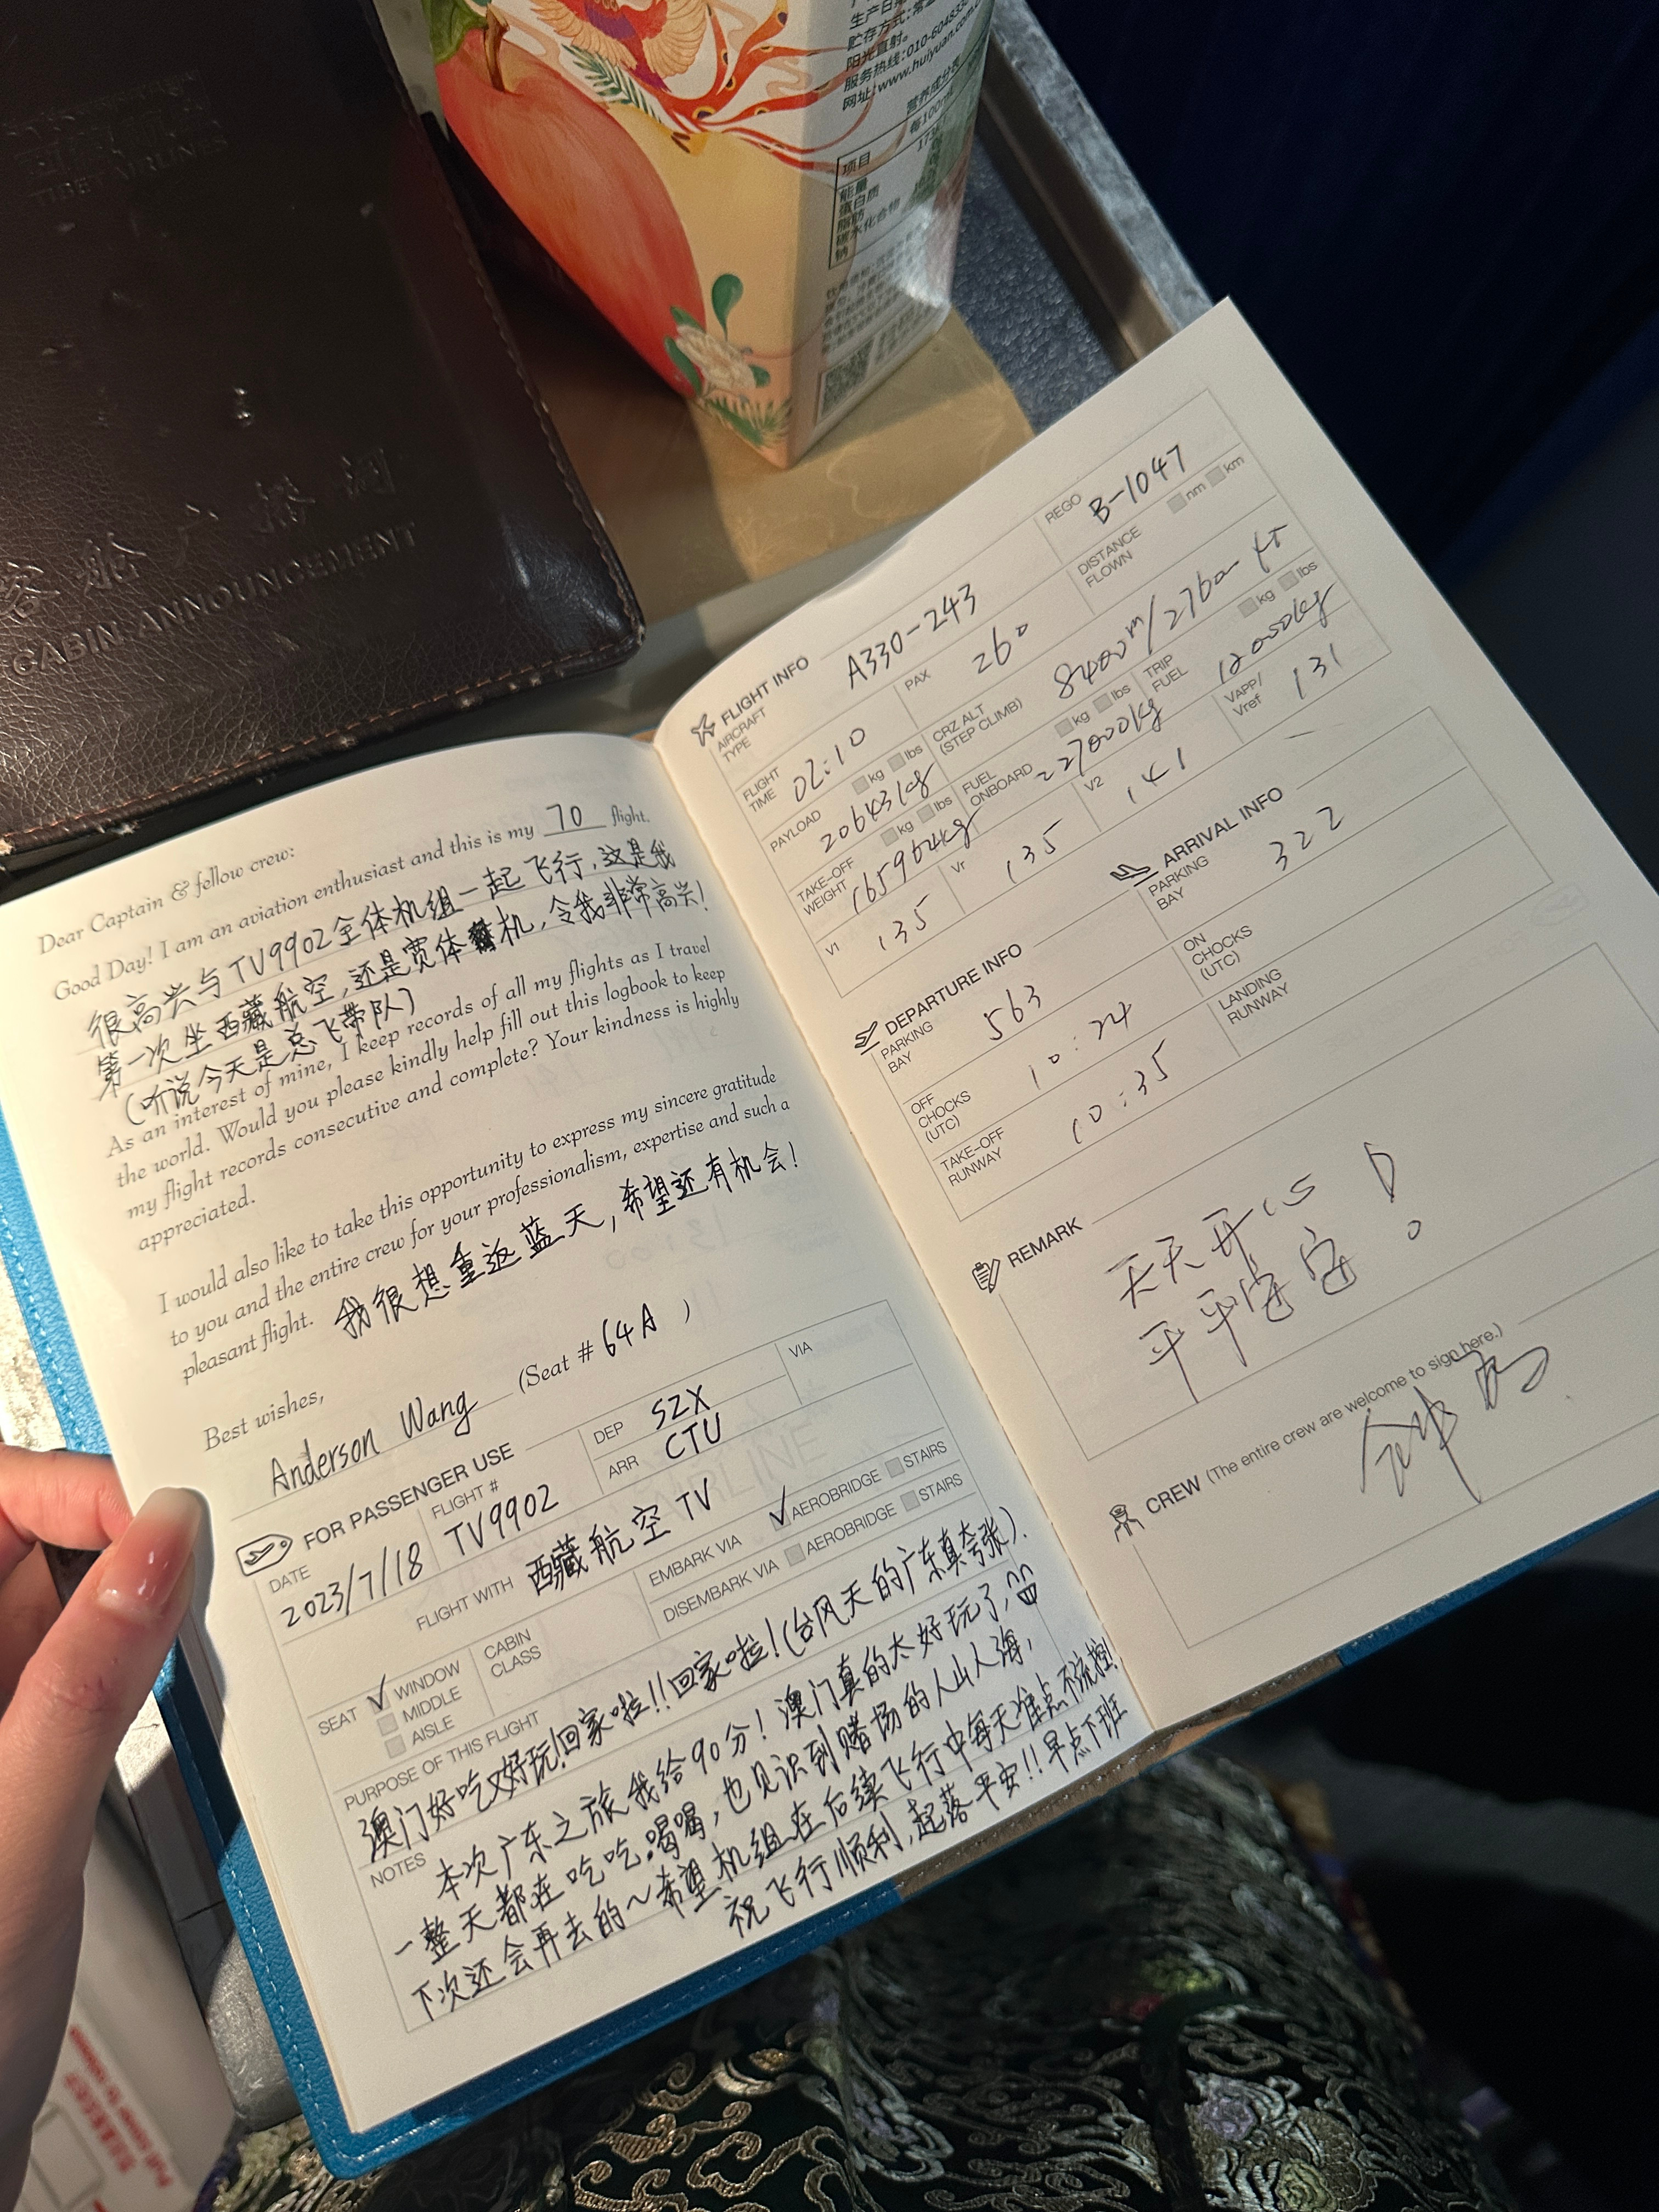 TIBET AIRLINES
客舱广播词
CABIN ANNOUNCEMENT
贮存方式:常温
阳光直射。
服务热线:010-604833
网址:www.huiyuan.com.c
营养成分表
项目
能量
蛋白质
脂肪
碳水化合物
钠
Dear Captain & fellow crew:
Good Day! I am an aviation enthusiast and this is my 70 flight.
很高兴与TV9902全体机组一起飞行,这是我
第一次坐西藏航空,还是宽体机,令我非常高兴!
(听说今天是总飞带队)
As an interest of mine, I keep records of all my flights as I travel
the world. Would you please kindly help fill out this logbook to keep
my flight records consecutive and complete? Your kindness is highly
appreciated.
I would also like to take this opportunity to express my sincere gratitude
to you and the entire crew for your professionalism, expertise and such a
pleasant flight. 我很想重返蓝天,希望还有机会!
Best wishes,
Anderson Wang (Seat # 64A )
FOR PASSENGER USE
DATE 2023/7/18
FLIGHT # TV9902
DEP SZX
ARR CTU
VIA
FLIGHT WITH 西藏航空 TV
EMBARK VIA ✓ AEROBRIDGE STAIRS
DISEMBARK VIA AEROBRIDGE STAIRS
SEAT ✓ WINDOW
MIDDLE
AISLE
CABIN CLASS
PURPOSE OF THIS FLIGHT
澳门好吃又好玩!回家啦!!回家啦!(台风天的广东真夸张).
NOTES
本次广东之旅我给90分!澳门真的太好玩了,
一整天都在吃吃喝喝,也见识到赌场的人山人海,
下次还会再去的~希望机组在后续飞行中每天准点不流控!
祝飞行顺利,起落平安!!早点下班
FLIGHT INFO
AIRCRAFT TYPE A330-243
REGO B-1047
FLIGHT TIME 02:10
PAX 260
DISTANCE FLOWN nm km
PAYLOAD kg lbs 20643kg
CRZ ALT (STEP CLIMB) 8400m/27600 ft
TAKE-OFF WEIGHT kg lbs 165964kg
FUEL ONBOARD kg lbs 27000kg
TRIP FUEL kg lbs 12000kg
V1 135
Vr 135
V2 141
VAPP/Vref 131
DEPARTURE INFO
PARKING BAY 563
OFF CHOCKS (UTC) 10:24
TAKE-OFF RUNWAY 10:35
ARRIVAL INFO
PARKING BAY 322
ON CHOCKS (UTC)
LANDING RUNWAY
REMARK
天天开心
平平安安!
CREW (The entire crew are welcome to sign here.)